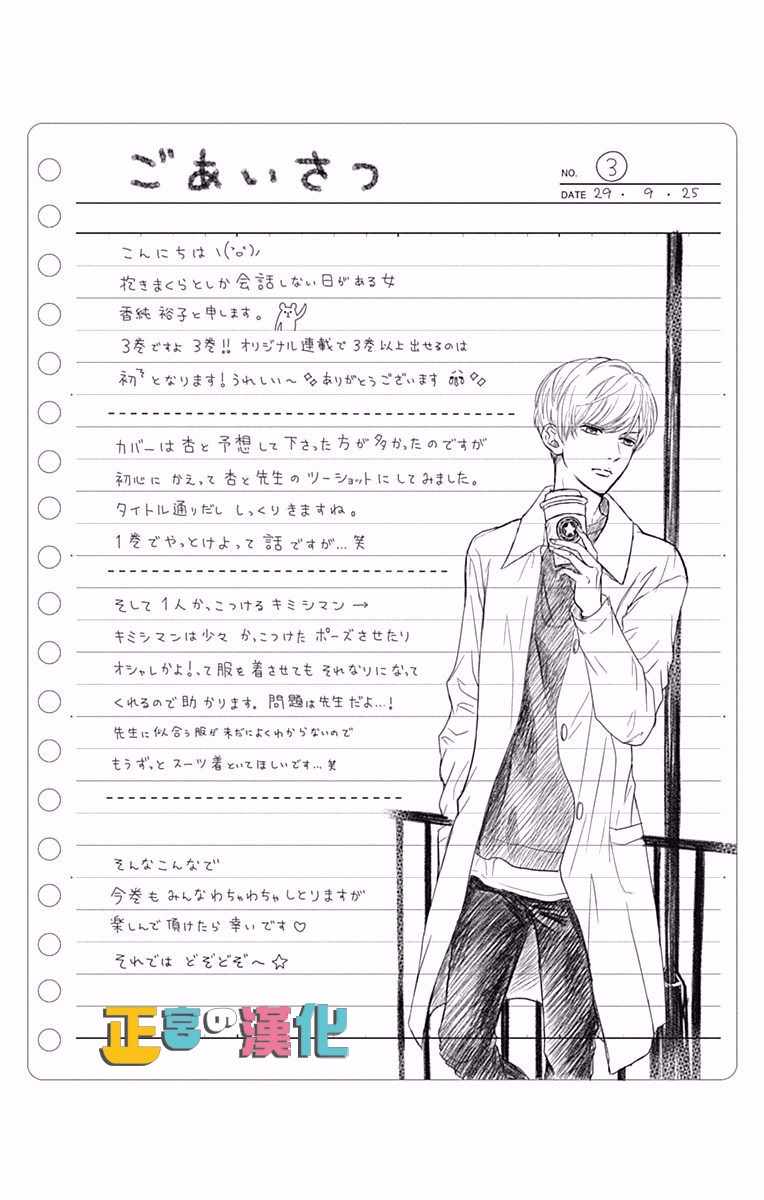 ごあいさつ
NO. ③
DATE 29・9・25
こんにちは ヽ(`ο´)ノ
抱きまくらとしか会話しない日がある女
香純裕子と申します。
3巻ですよ 3巻!! オリジナル連載で3巻以上出せるのは
初となります!うれしい〜 ありがとうございます
カバーは杏と予想して下さった方が多かったのですが
初心にかえって杏と先生のツーショットにしてみました。
タイトル通りだし しっくりきますね。
1巻でやっとけよって話ですが…笑
そして1人かっこつけるキミシマン→
キミシマンは少々かっこつけたポーズさせたり
オシャレかよ!って服を着させても それなりになって
くれるので助かります。問題は先生だよ…!
先生に似合う服が未だによくわからないので
もうずっとスーツ着といてほしいです…笑
そんなこんなで
今巻もみんなわちゃわちゃしとりますが
楽しんで頂けたら幸いです♡
それでは どぞどぞ〜☆
正宮の漢化